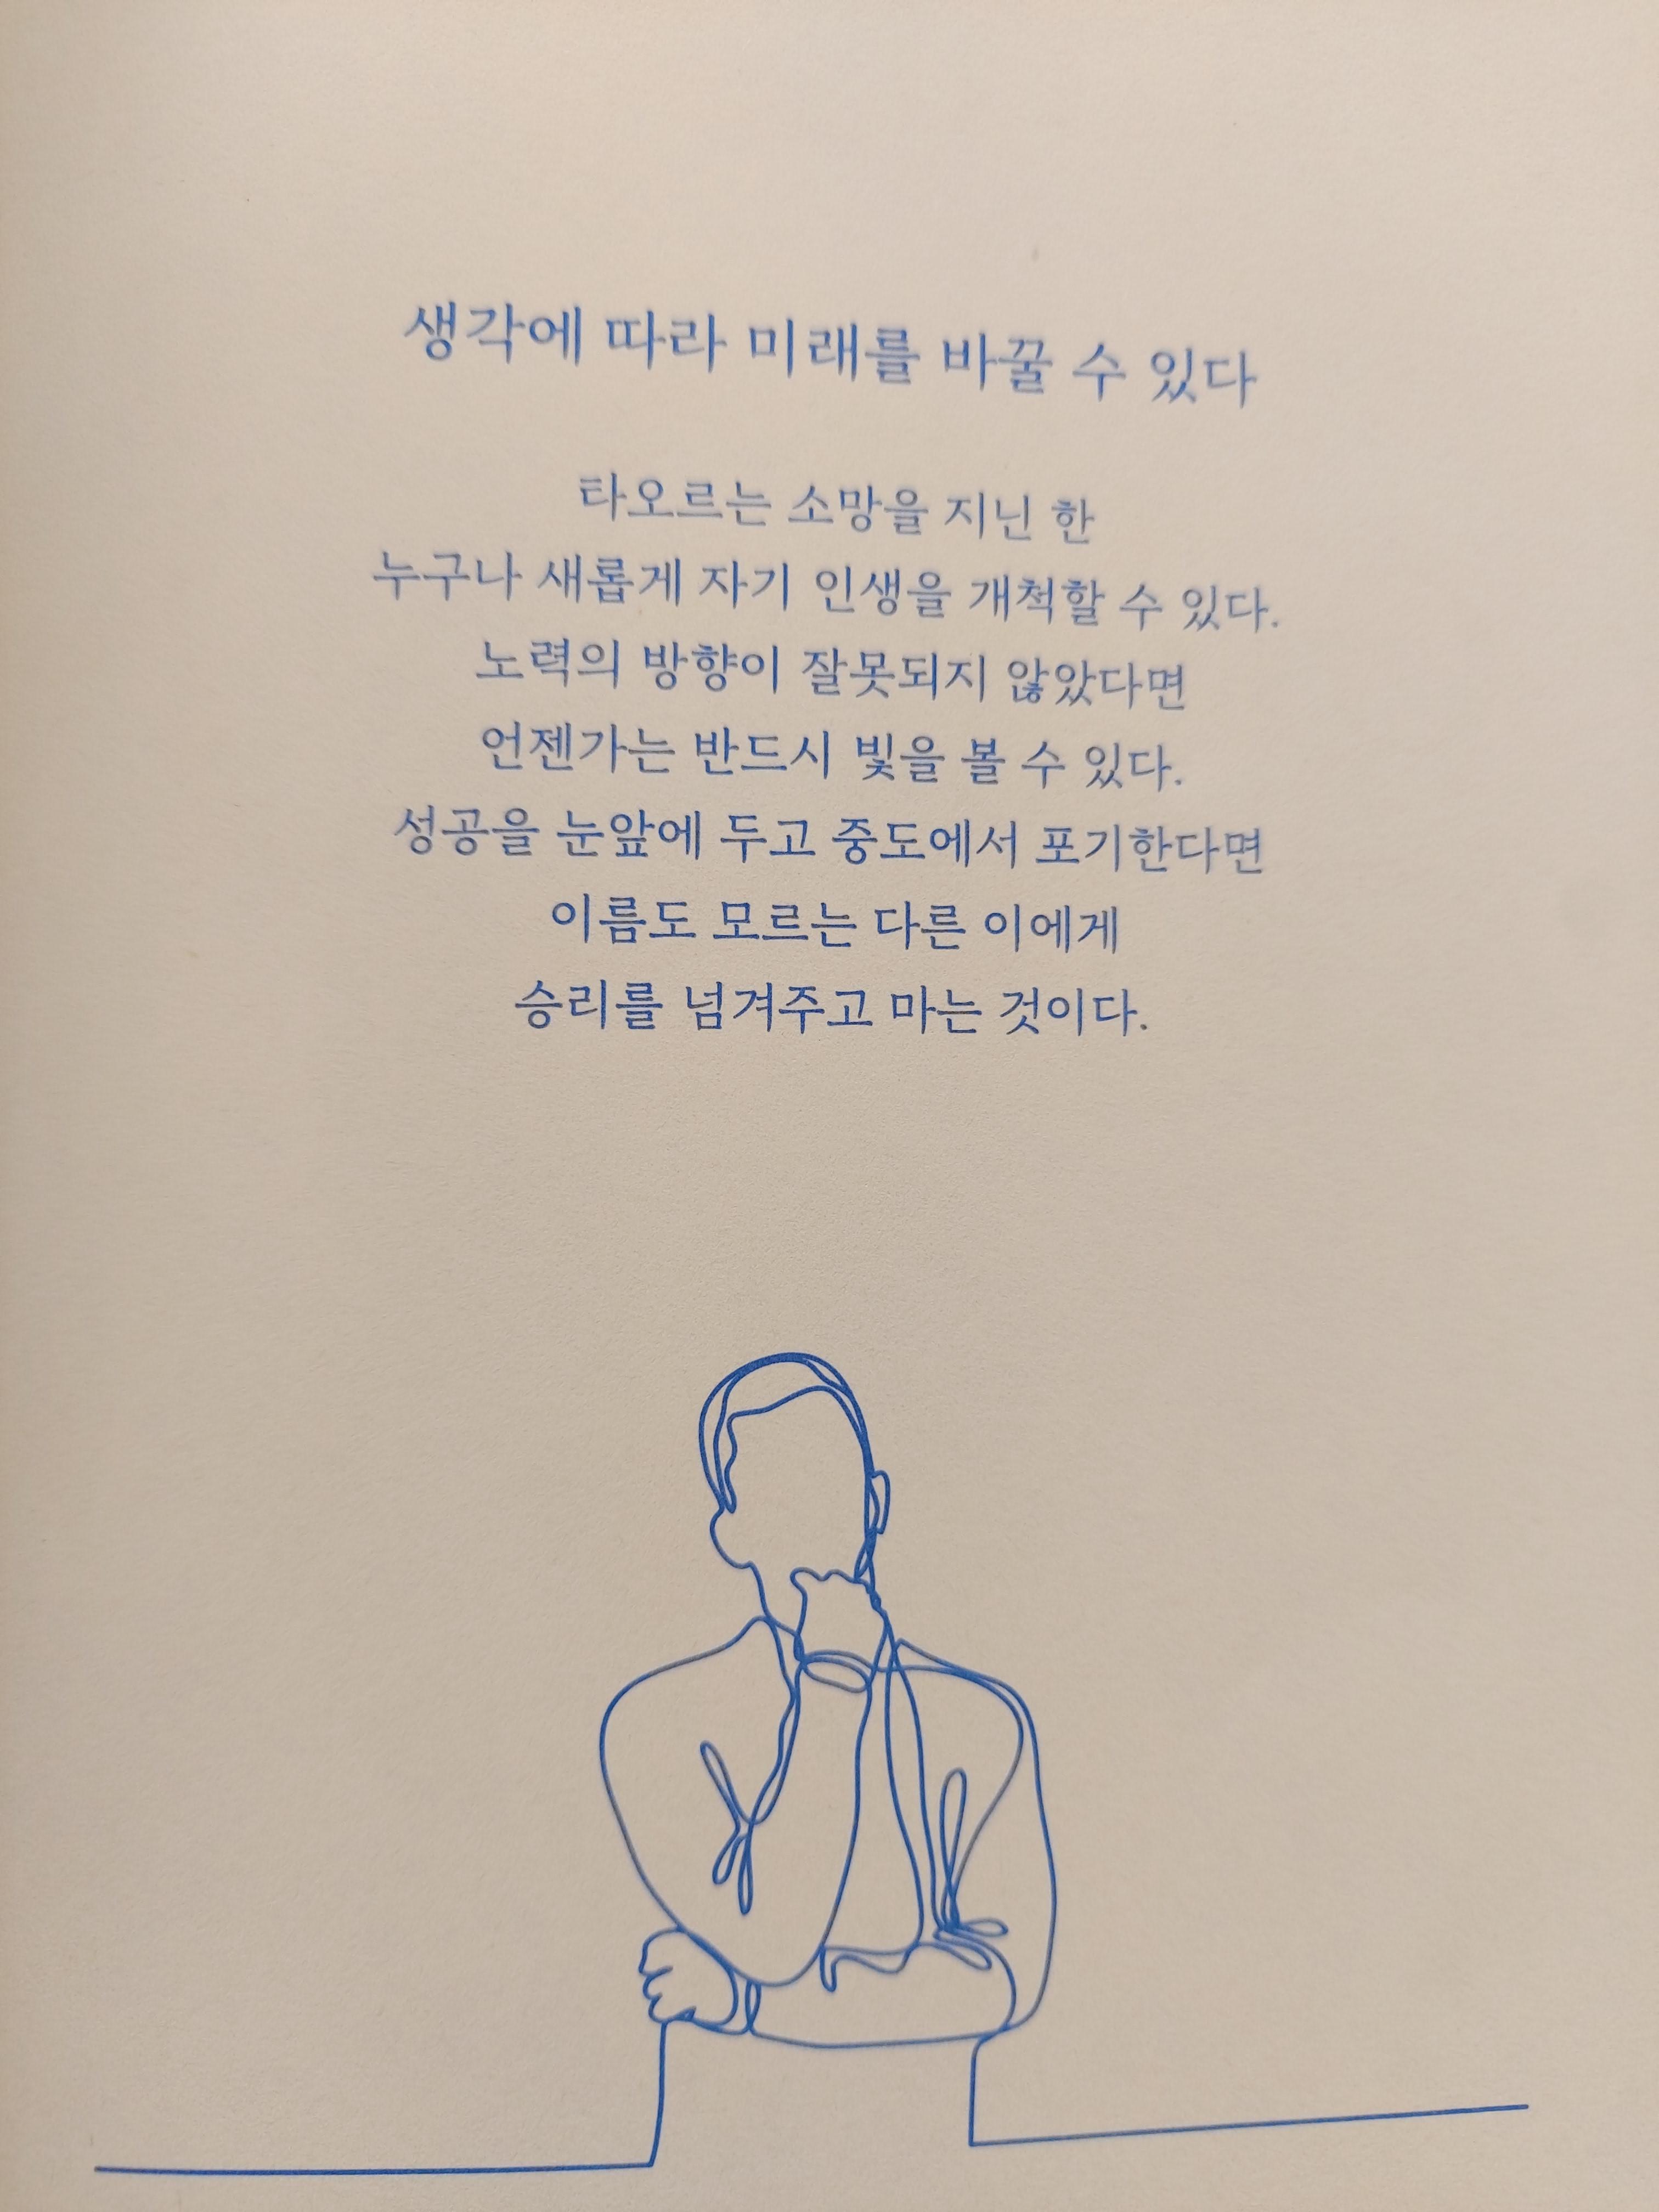 생각에 따라 미래를 바꿀 수 있다
타오르는 소망을 지닌 한
누구나 새롭게 자기 인생을 개척할 수 있다.
노력의 방향이 잘못되지 않았다면
언젠가는 반드시 빛을 볼 수 있다.
성공을 눈앞에 두고 중도에서 포기한다면
이름도 모르는 다른 이에게
승리를 넘겨주고 마는 것이다.